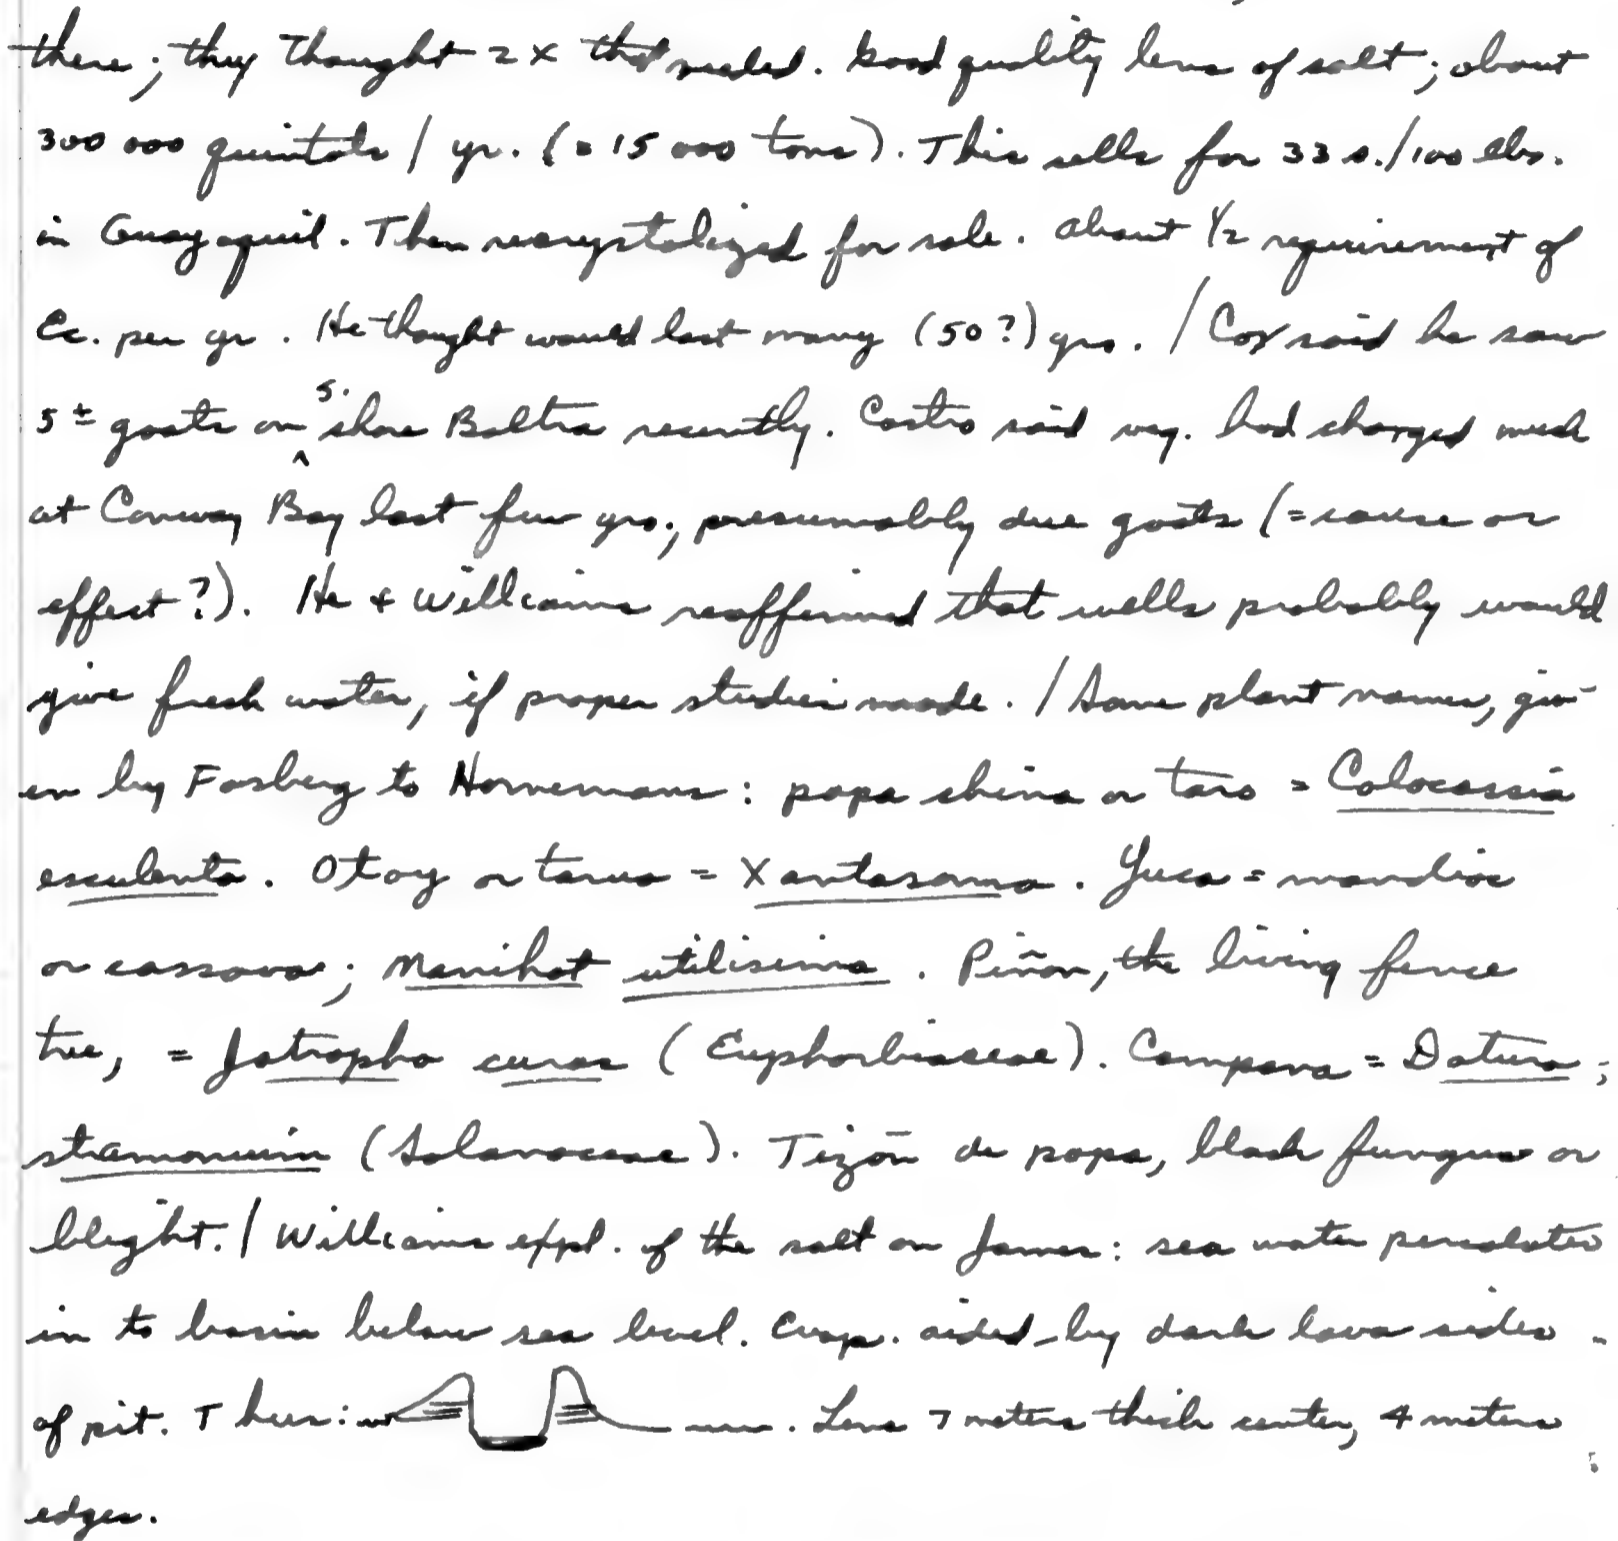 there; they thought 2 x that needed. Good quality lens of salt; about
300 000 quintals / yr. (= 15 000 tons). This sells for 33 s./100 lbs.
in Guayaquil. Then recrystalized for sale. About 1/2 requirement of
Ec. per yr. He thought would last many (50?) yrs. / Cox said he saw
5 ± goats on S. shore Baltra recently. Castro said veg. had changed much
at Conway Bay last few yrs.; presumably due goats (= cause or
effect?). He & Williams reaffirmed that wells probably would
give fresh water, if proper studies made. / Some plant names, giv-
en by Fosberg to Hornemans: papa china or taro = Colocassia
esculenta. Otoy or tarua = Xantasoma. Yuca = mandioc
or cassava; Manihot utilisima. Piñon, the living fence
tree, = Jatropha curas (Euphorbiaceae). Campana = Datura;
stramonium (Solanaceae). Tizōn de papa, black fungus or
blight. / Williams expl. of the salt on James: sea water percolates
in to basin below sea level. Evap. aided by dark lava sides
of pit. Thus: . Lens 7 meters thick center, 4 meters
edges.